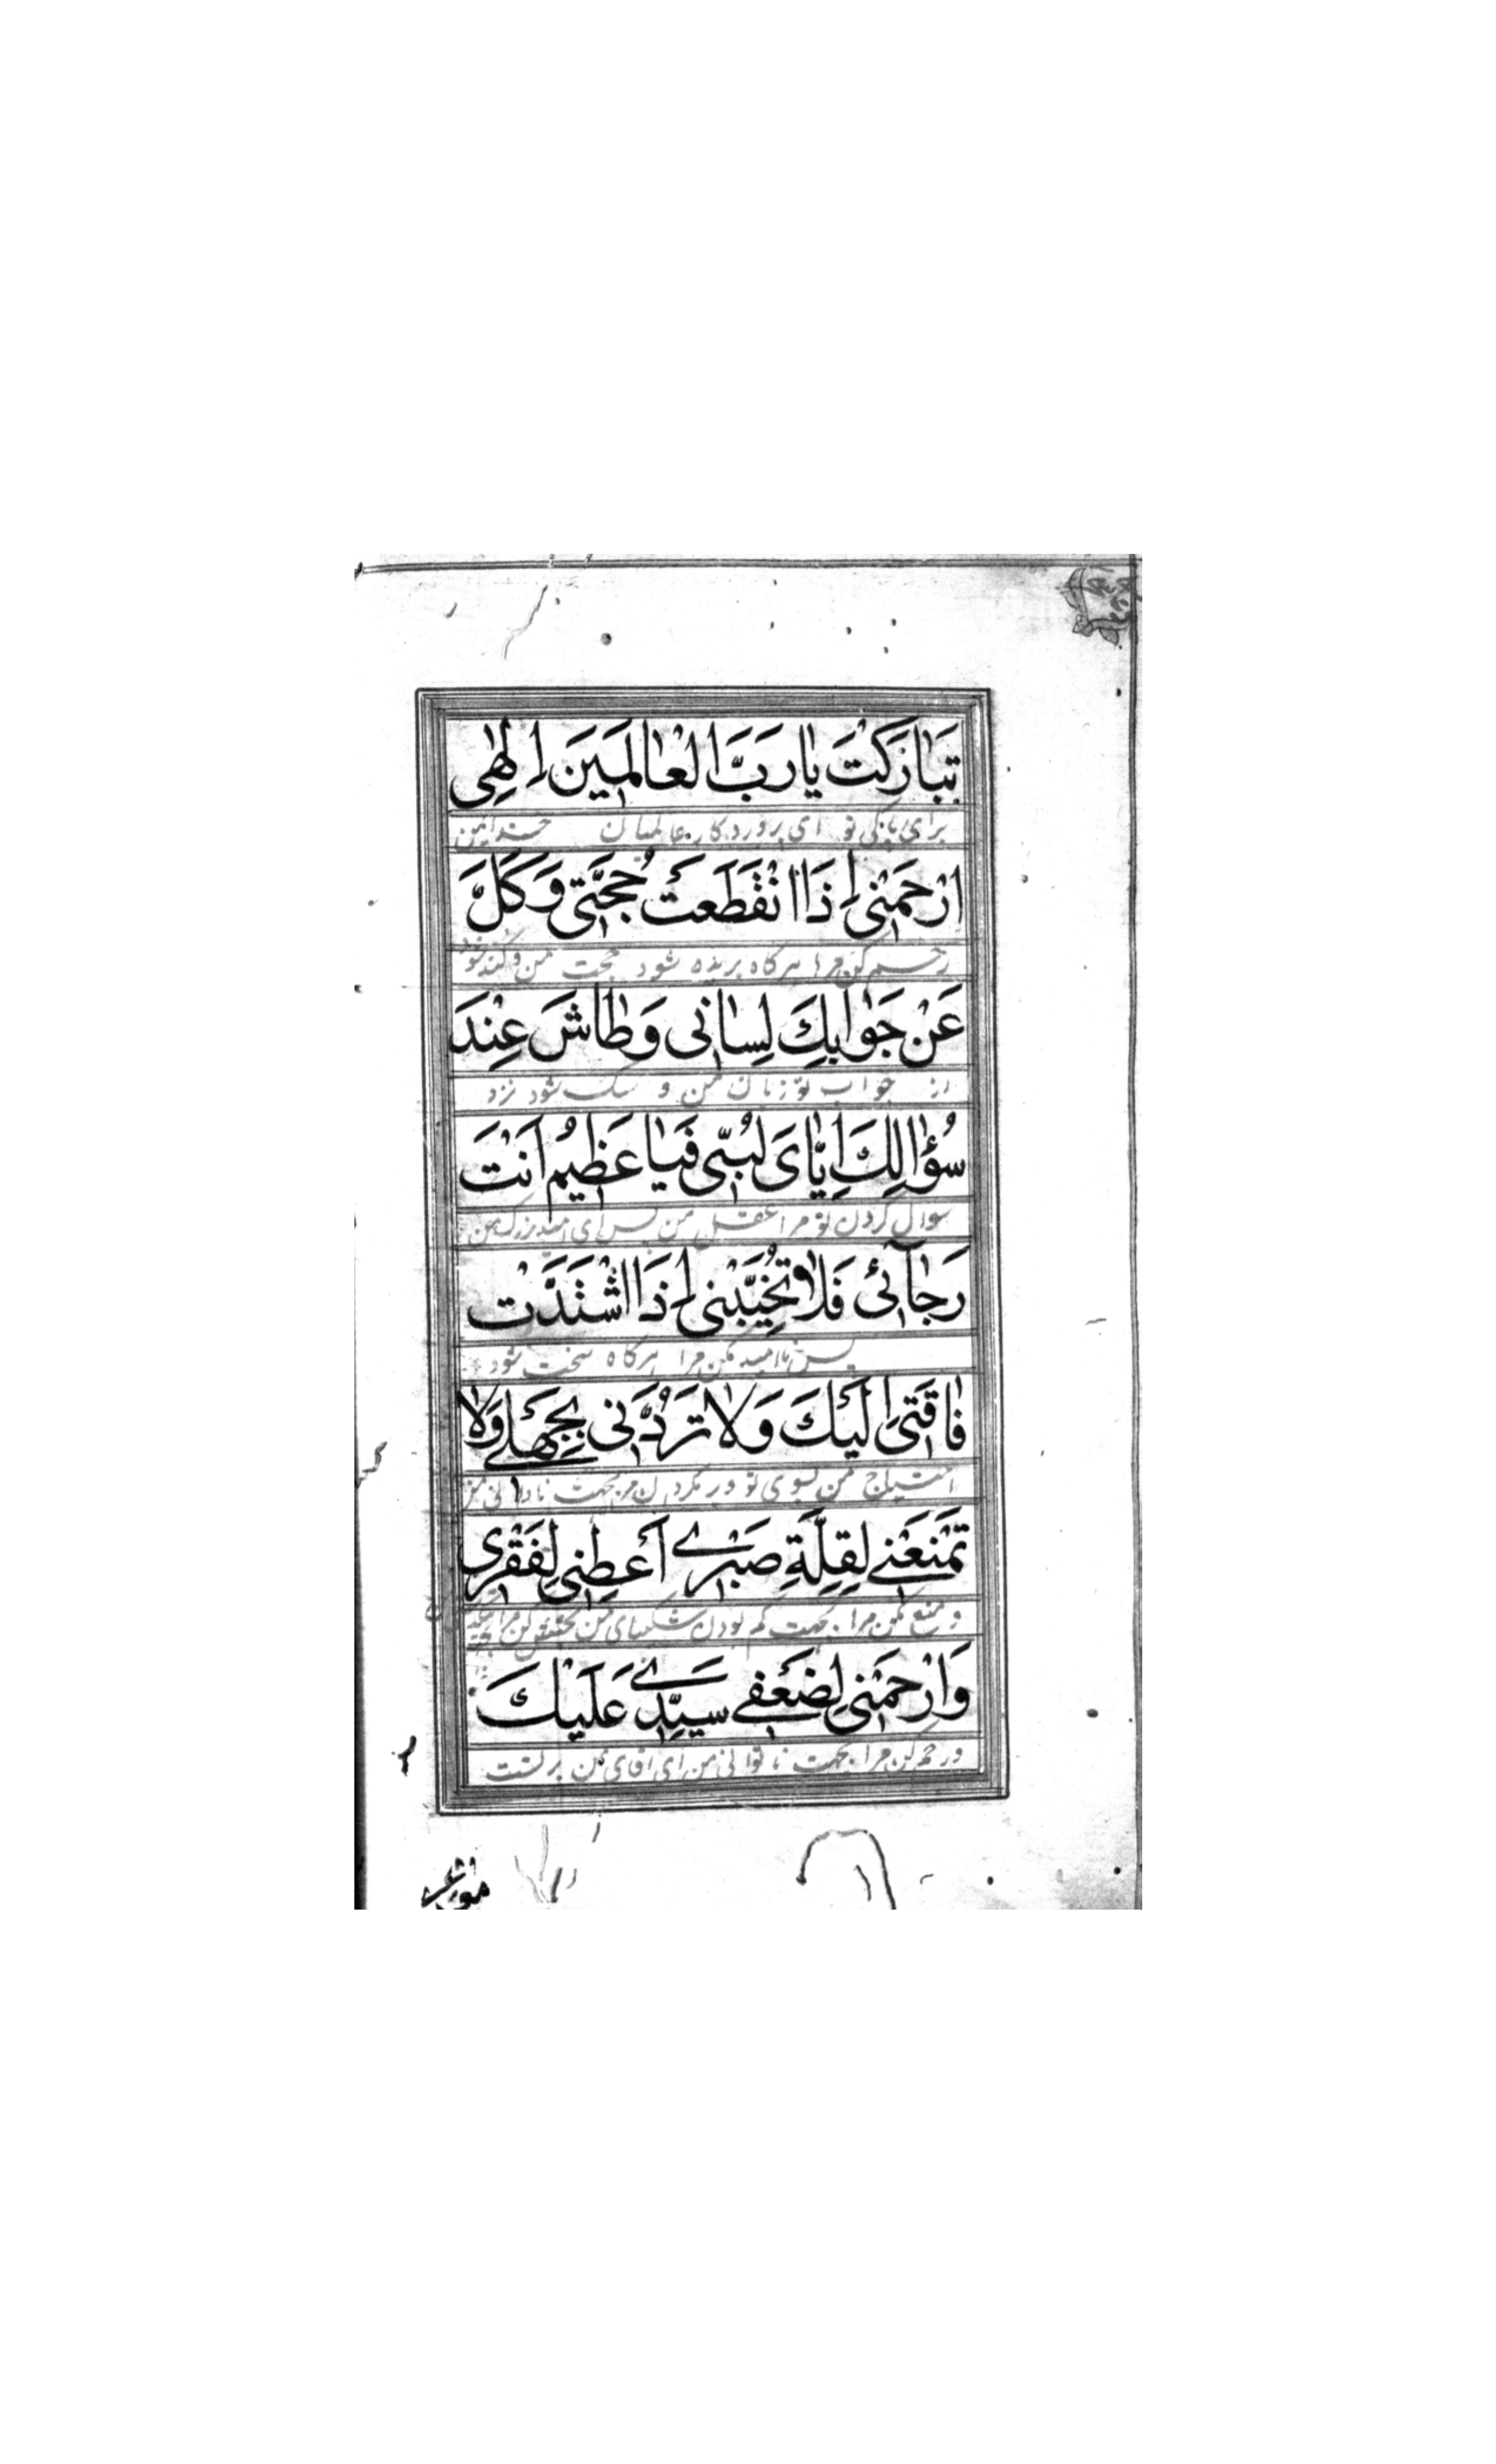 تَبٰارَكْتَ يٰا رَبَّ الْعٰالَمِينَ اِلٰهِى
برای پاکی تو ای پروردکار عالمیان خدای من
اِرْحَمْنِى اِذَا انْقَطَعَتْ حُجَّتِى وَكَلَّ
رحم کن مرا هرکاه بریده شود حجت من و کند شود
عَنْ جَوٰابِكَ لِسٰانِى وَطٰاشَ عِنْدَ
از جواب تو زبان من و سبک شود نزد
سُؤٰالِكَ اِيّٰاىَ لُبِّى فَيٰا عَظِيمُ اَنْتَ
سوال کردن تو مرا عقل من پس ای امید بزرک من
رَجٰآئِى فَلاٰ تُخَيِّبْنِى اِذَا اشْتَدَّتْ
پس نا امید مکن مرا هرکاه سخت شود
فٰاقَتِى اِلَيْكَ وَلاٰ تَرُدَّنِى بِجَهْلِے وَلاٰ
احتیاج من بسوی تو و بر مکردان مرا بجهت نادانی من
تَمْنَعْنِے لِقِلَّةِ صَبْرِے اَعْطِنِى لِفَقْرِى
و منع مکن مرا بجهت کم بودن شکیبای من بخشش کن مرا
وَارْحَمْنِى لِضَعْفِے سَيِّدِے عَلَيْكَ
و رحم کن مرا بجهت نا توانی من ای اقای من بر تست